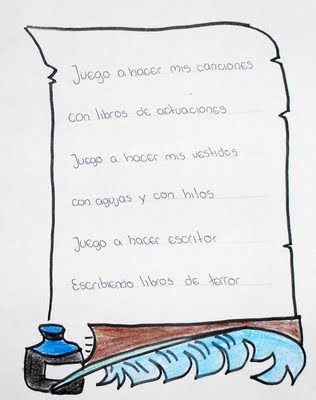 Juego a hacer mis canciones
con libros de actuaciones
Juego a hacer mis vestidos
con agujas y con hilos
Juego a hacer escritor
Escribiendo libros de terror